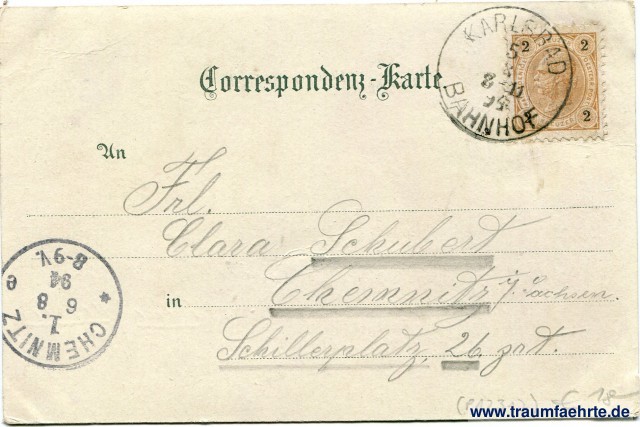 Correspondenz-Karte
KARLSBAD
BAHNHOF
2 2
2
An
Frl.
Clara Schubert
in Chemnitz i/Sachsen.
Schillerplatz, 26, prt.
CHEMNITZ
1.
6 8
94
8-9V.
e
www.traumfaehrte.de